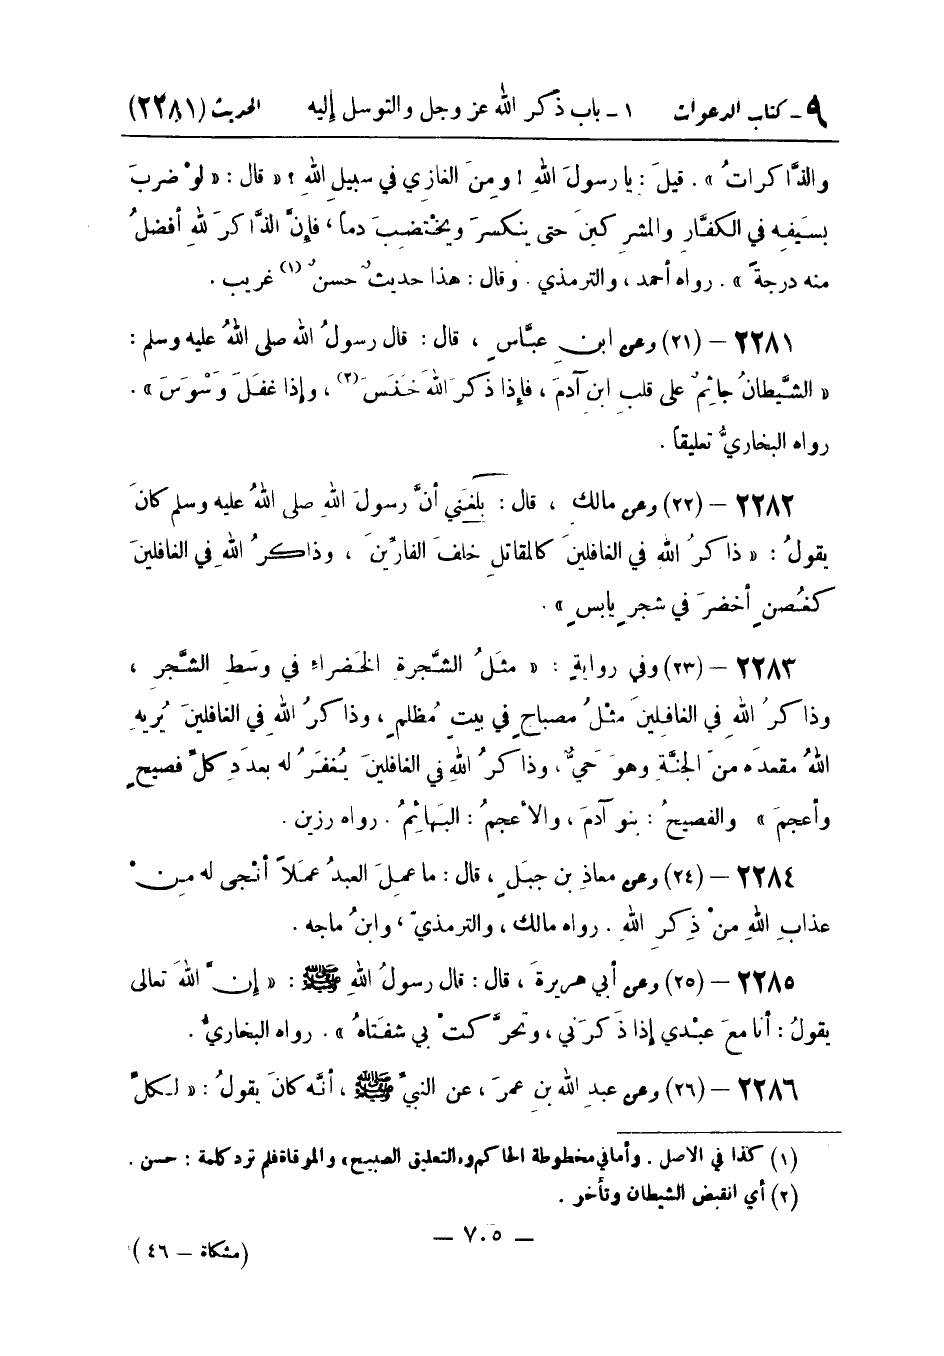 ٩ ـ كتاب الدعوات ١ ـ باب ذكر الله عز وجل والتوسل إليه الحديث (٢٢٨١)
والذَّاكراتُ » . قيلَ : يا رسولَ اللهِ ! ومِنَ الغازي في سبيلِ اللهِ ؟ « قال : « لوْ ضربَ
بسَيفِهِ في الكفَّارِ والمشركينَ حتى ينكسرَ ويختْضبَ دماً ، فإنَّ الذَّاكرَ للهِ أفضلُ
منه درجةً » . رواه أحمد ، والترمذي . وقال : هذا حديثٌ حسنٌ (١) غريب .
٢٢٨١ – (٢١) وعن ابنِ عبَّاسٍ ، قال : قال رسولُ الله صلى اللهُ عليه وسلم :
« الشَّيطانُ جاثِمٌ على قلبِ ابنِ آدمَ ، فإذا ذكرَ اللهَ خَنَسَ (٢) ، وإذا غفَلَ وَسْوَسَ » .
رواه البخاريُّ تعليقاً .
٢٢٨٢ – (٢٢) وعن مالكٍ ، قال : بَلَغَني أنَّ رسولَ اللهِ صلى اللهُ عليه وسلم كانَ
يقولُ : « ذاكرُ اللهِ في الغافلينَ كالمقاتلِ خلفَ الفارِّينَ ، وذاكرُ اللهِ في الغافلينَ
كغُصنٍ أخضرَ في شجرٍ يابسٍ » .
٢٢٨٣ – (٢٣) وفي روايةٍ : « مثَلُ الشَّجرةِ الخَضراءِ في وسَطِ الشَّجرِ ،
وذاكرُ اللهِ في الغافلينَ مثلُ مصباحٍ في بيتٍ مُظلمٍ ، وذاكرُ اللهِ في الغافلينَ يُريهِ
اللهُ مقعدَه منَ الجنَّةِ وهوَ حَيٌّ ، وذاكرُ اللهِ في الغافلينَ يُغفَرُ له بعددِ كلِّ فصيحٍ
وأعجمَ » والفصيحُ : بنو آدمَ ، والأعجمُ : البَهائمُ . رواه رزين .
٢٢٨٤ – (٢٤) وعن معاذِ بنِ جبَلٍ ، قال : ما عمِلَ العبدُ عمَلاً أنْجى له مِنْ
عذابِ اللهِ منْ ذِكرِ اللهِ . رواه مالك ، والترمذيّ ، وابنُ ماجه .
٢٢٨٥ – (٢٥) وعن أبي هريرةَ ، قال : قال رسولُ اللهِ ﷺ : « إنَّ اللهَ تعالى
يقولُ : أنا معَ عبْدي إذا ذكرَني ، وتحرَّكتْ بي شفَتاهُ » . رواه البخاريُّ .
٢٢٨٦ – (٢٦) وعن عبدِ الله بنِ عمرَ ، عن النبيِّ ﷺ ، أنَّه كانَ يقولُ : « لكلِّ
(١) كذا في الاصل . وأما في مخطوطة الحاكم و«التعليق الصبيح» والمرقاة فلم ترد كلمة : حسن .
(٢) أي انقبض الشيطان وتأخر .
– ٧٠٥ –
(مشكاة – ٤٦)